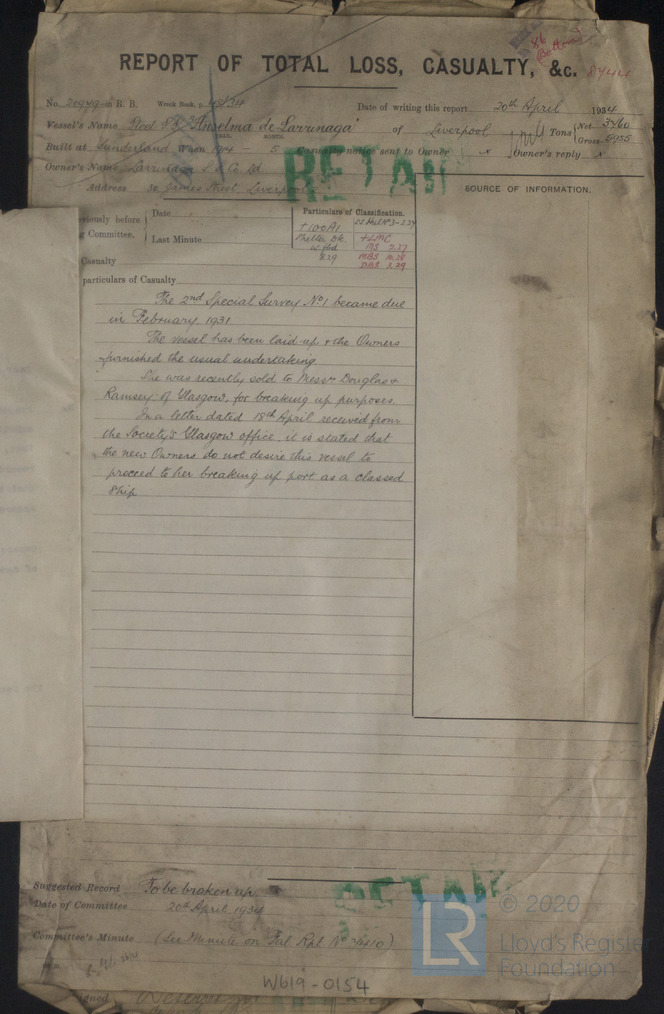 REPORT OF TOTAL LOSS, CASUALTY, &c.
No. 20979 in R. B. Wreck Book, p.
Date of writing this report 20th April 1934
Vessel's Name Steel S.S. "Anselma de Larrinaga" of Liverpool Tons Net 3460 Gross
Built at Sunderland When 1914 - 5 Casualty notice sent to Owner x Owner's reply x
YEAR. MONTH.
Owner's Name Larrinaga S.S. Co Ld
Address 30 James Street, Liverpool
RETAIN
SOURCE OF INFORMATION.
viously before
g Committee.
Date
Last Minute
Particulars of Classification.
+100A1
Shelter Dk
w fbd
8.29
+LMC
MS 2.27
DBS 3.29
Casualty
particulars of Casualty
The 2nd Special Survey No. 1 became due
in February 1931
The vessel has been laid up & the Owners
furnished the usual undertaking.
She was recently sold to Messrs Douglas &
Ramsey of Glasgow, for breaking up purposes.
In a letter dated 18th April received from
the Society's Glasgow office, it is stated that
the new Owners do not desire this vessel to
proceed to her breaking up port as a classed
Ship.
RETAIN
Suggested Record To be broken up
Date of Committee 20th April 1934
Committee's Minute (See Minute on Rpt No
W619-0154
LR
© 2020
Lloyd's Register
Foundation